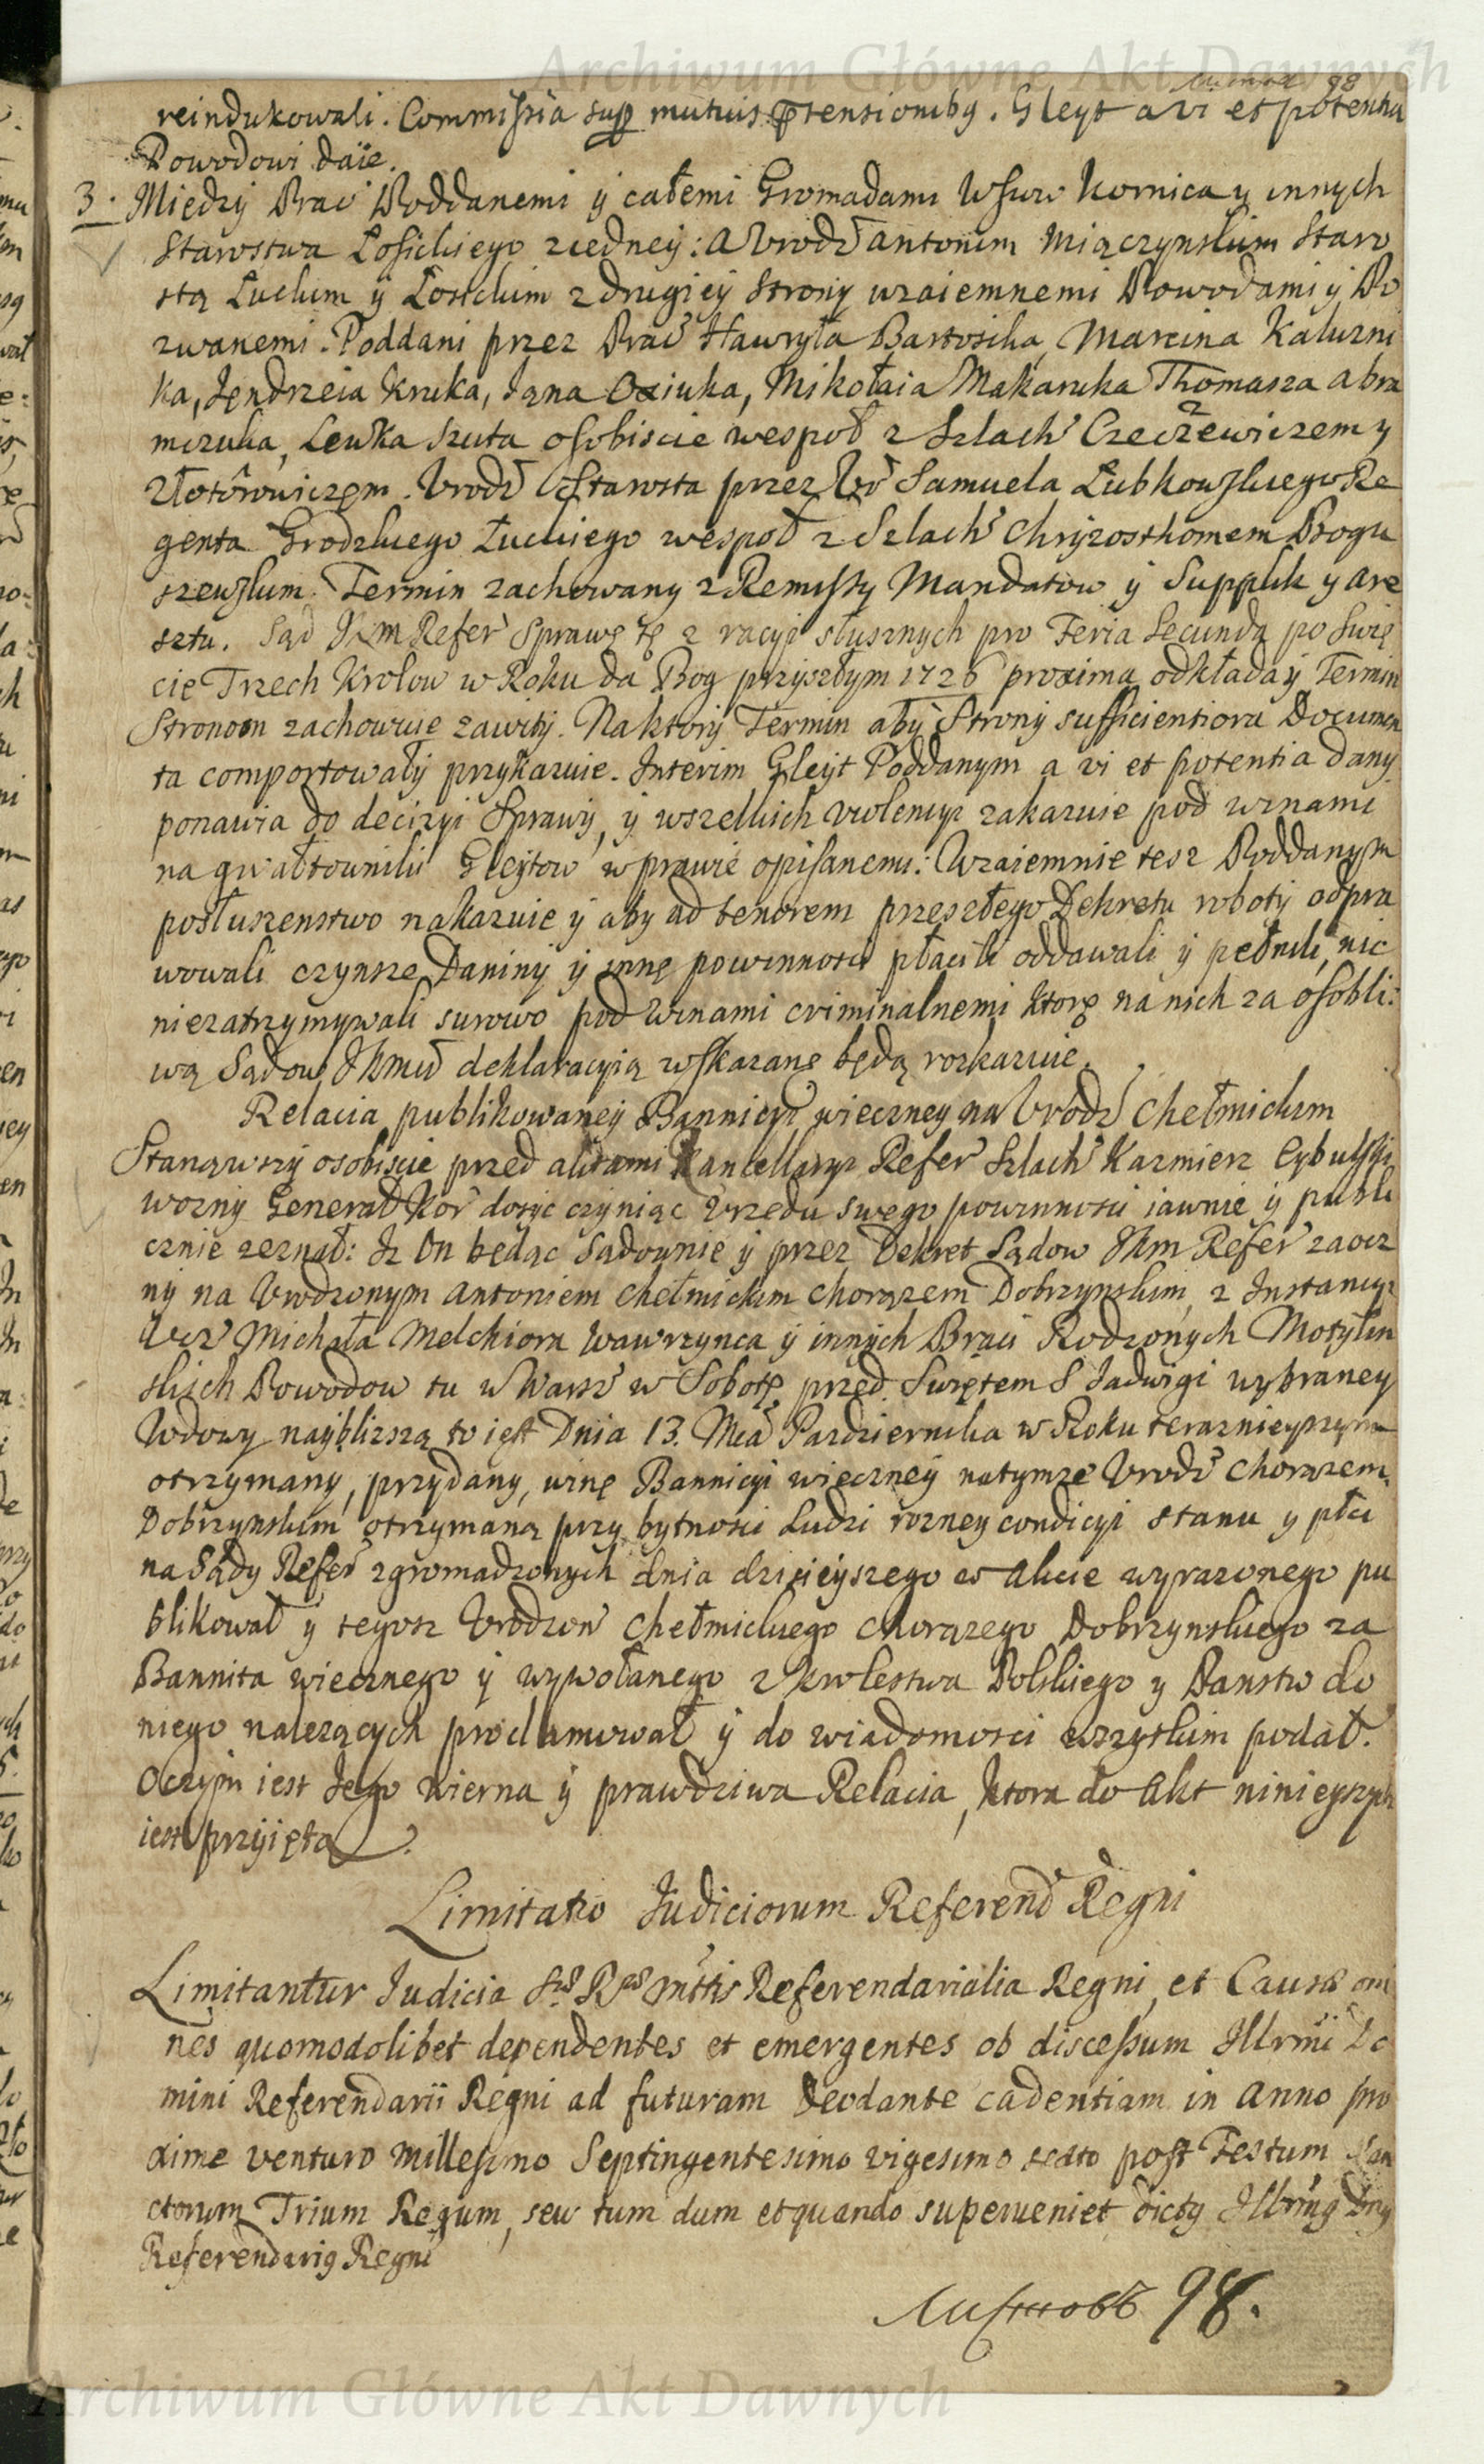 Archiwum Główne Akt Dawnych
98
reindukowali. Commissia sup mutuis ptensionibg. Gleyt a vi et potentia
Powodowi daie.
3. Między Prac Poddanemi ÿ całemi Gromadami Wsiow Kornica y innych
Starostwa Losickiego z iedneÿ: a Urodz Antonim Miączynskim Staro
stą Luckim ÿ Łosickim z drugieÿ Stronÿ wzaiemnemi Powodami ÿ Po
zwanemi. Poddani przez Prac Hawryła Bartosika, Marcina Kaluzni
ka, Jendrzeia Kruka, Jana Oxiuka, Mikołaia Makaruka Thomasza Abra
mczuka, Lewka Szuta osobiscie wespoł z Szlach Czeczewiczem y
Złotorowiczem. Urodz Starosta przez Ur Samuela Lubkowskiego Re
genta Grodzkiego Łuckiego wespoł z Szlach Chrÿzosthomem Bogu
szewskim. Termin zachowany z Remissÿ Mandatow ÿ Supplik y Are
sztu. Sąd JKM Refer Sprawę tę z racyi słusznych pro Feria Secunda po Swię
cie Trzech Krolow w Roku da Bog przÿszłym 1726 proxima odkłada ÿ Termin
Stronom zachowuie zawitÿ. Na ktorÿ Termin abÿ Stronÿ sufficientiora Documen
ta comportowałÿ przykazuie. Interim Gleÿt Poddanym a vi et potentia dany
ponawia do decizyi Sprawÿ, ÿ wszelkich violencyi zakazuie pod winami
na gwałtowniki Gleÿtow w prawie opisanemi: Wzaiemnie tesz Poddanym
posłuszenstwo nakazuie ÿ aby ad tenorem przeszłego Dekretu robotÿ odpra
wowali czynsze Daninÿ ÿ innę powinnosci płacili oddawali ÿ pełnili, nic
niezatrzymywali surowo pod winami criminalnemi ktorę na nich za osobli:
wą Sądow JKMci deklaracyią wskazanę będą rozkazuie.
Relacia publikowaneÿ Bannicyi wieczney na Urodz Chełmickim
Stanąwszÿ osobiscie przed aktami Kancellaryi Refer Szlach Kazmierz Cybulski
woznÿ Generał Kor dosÿc czÿniąc Urzedu swego powinnosci iawnie ÿ publi
cznie zeznał: Iz On będąc Sądownie ÿ przez Dekret Sądow JKm Refer zaocz
nÿ na Urodzonym Antoniem Chełmickim Chorązem Dobrzynskim, z Instancyi
Michała Melchiora Wawrzynca ÿ innÿch Braci Rodzonÿch Motylin
skich Powodow tu w Warsz w Sobotę przed Swiętem S Jadwigi wybraney
Wdowy naÿblizszą to iest Dnia 13. Mca Pazdziernika w Roku teraznieyszym
otrzymany, przÿdany, winę Bannicÿi wieczneÿ natymze Urodz Chorązem
Dobrzynskim otrzymaną przy bytnosci Ludzi rozney condicyi stanu y płci
na Sądy Refer zgromadzonych dnia dzisieyszego w Akcie wyrazonego pu
blikował y tegosz Urodzon Chełmickiego Chorązego Dobrzynskiego za
Bannita wiecznego ÿ wywołanego z Krolestwa Polskiego y Panstw do
niego nalezących proclamował ÿ do wiadomosci wszystkim podał.
Oczym iest Jego wierna ÿ prawdziwa Relacia, ktora do Akt ninieyszych
iest przÿięta.
Limitatio Judiciorum Referend Regni
Limitantur Judicia Regni Referendarialia Regni, et Causæ om
nes quomodolibet dependentes et emergentes ob discessum Illrmi Do
mini Referendarii Regni ad futuram Deodante cadentiam in Anno pro
xime venturo Millesimo Septingentesimo vigesimo sexto post Festum San
ctorum Trium Regum, seu tum dum et quando superveniet dictg Illrmg Dng
Referendarig Regni
Листовъ 98.
Archiwum Główne Akt Dawnych